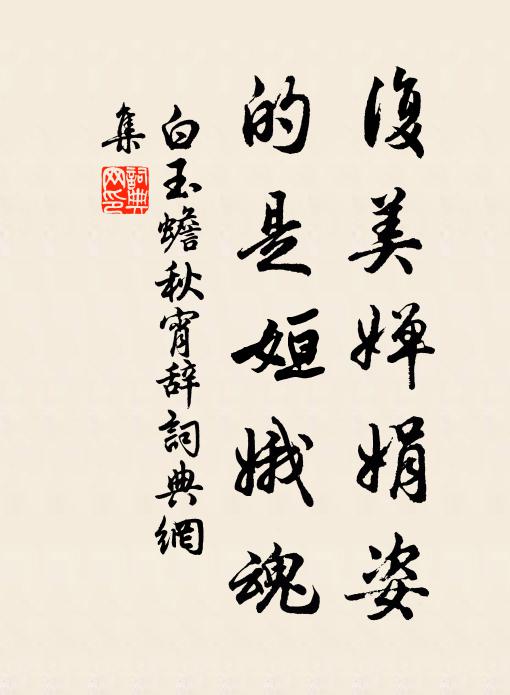 復美嬋娟姿
的是姮娥魂
白玉蟾秋宵辞詞典網
集
詞典
网印